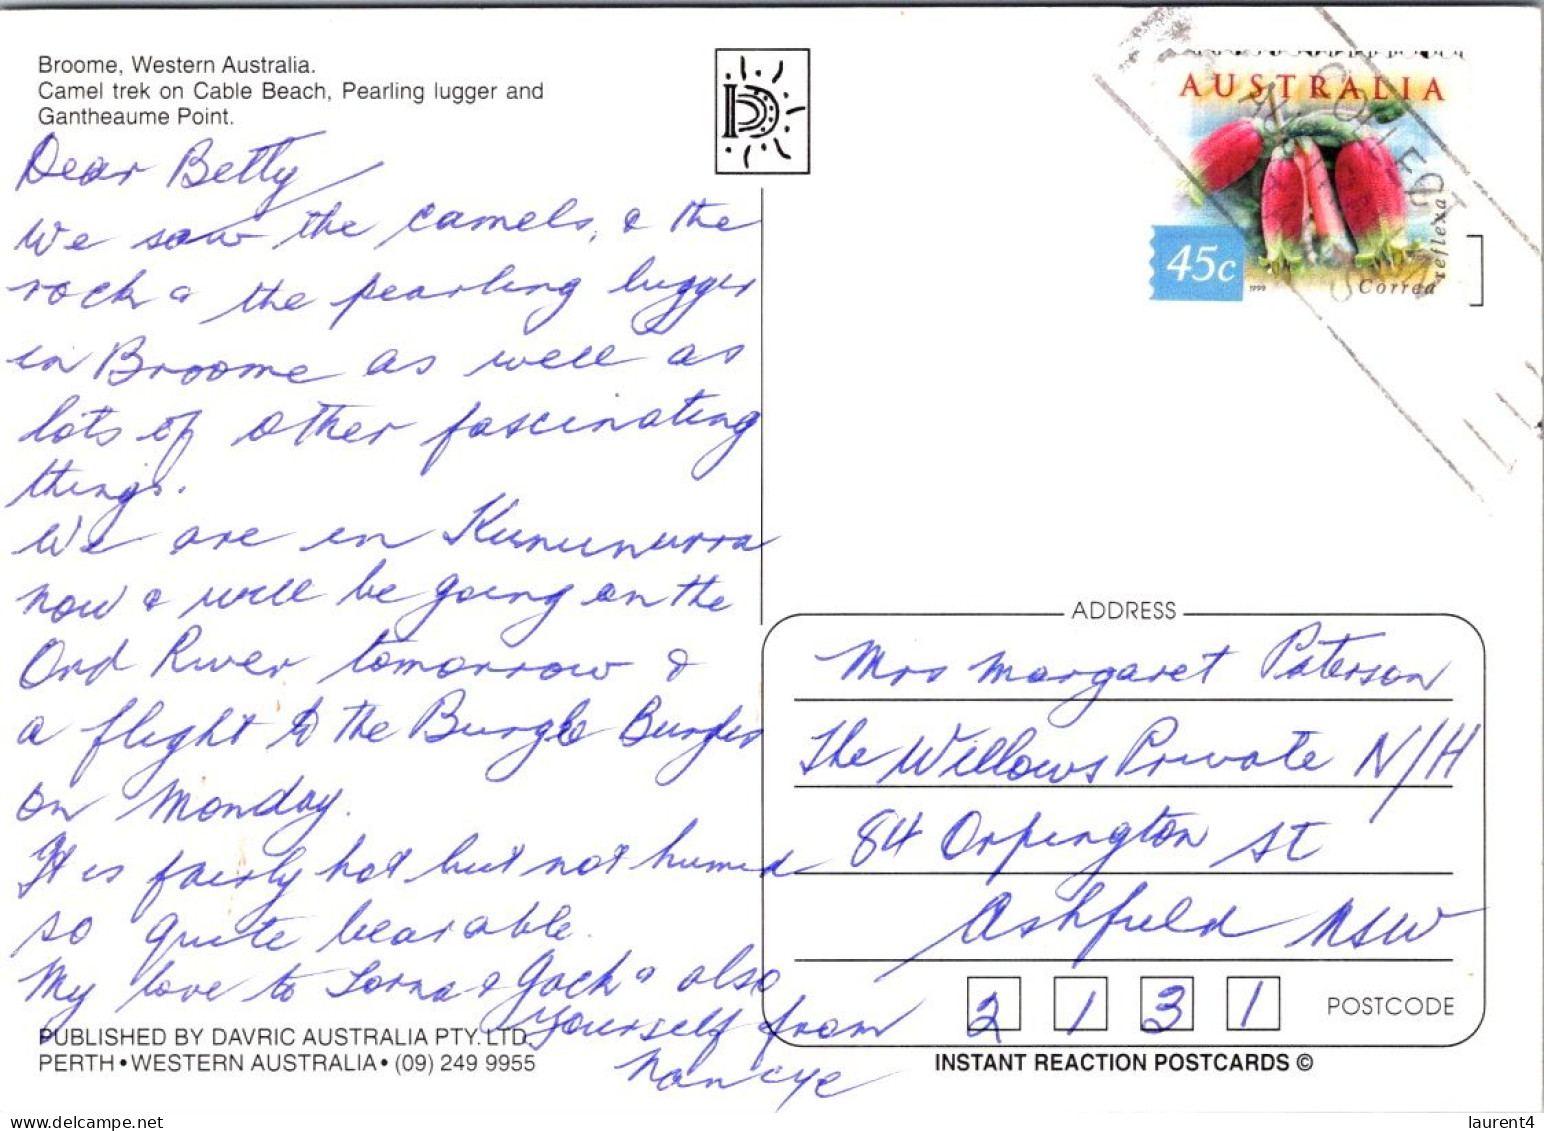 Broome, Western Australia.
Camel trek on Cable Beach, Pearling lugger and
Gantheaume Point.
Dear Betty
We saw the camels, & the
rock & the pearling lugger
in Broome as well as
lots of other fascinating
things.
We are in Kununurra
now & will be going on the
Ord River tomorrow &
a flight to the Bungle Bungles
on Monday.
It is fairly hot but not humid
so quite bearable.
My love to Lorna & Jack & also
yourself from
Nancye
PUBLISHED BY DAVRIC AUSTRALIA PTY. LTD.
PERTH • WESTERN AUSTRALIA • (09) 249 9955
D
AUSTRALIA
45c
1999
Correa
reflexa
ADDRESS
Mrs Margaret Paterson
The Willows Private N/H
84 Orpington St
Ashfield NSW
2131 POSTCODE
INSTANT REACTION POSTCARDS ©
delcampe.net
laurent4